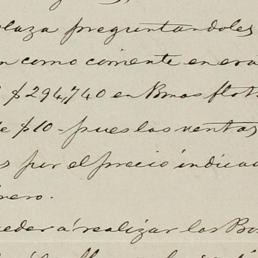 plaza preguntandoles
como corriente en era
$294,740 en Bonos flot
de $10 - pues las ventas
por el precio indica
nero.
ceder a realizar los Bo